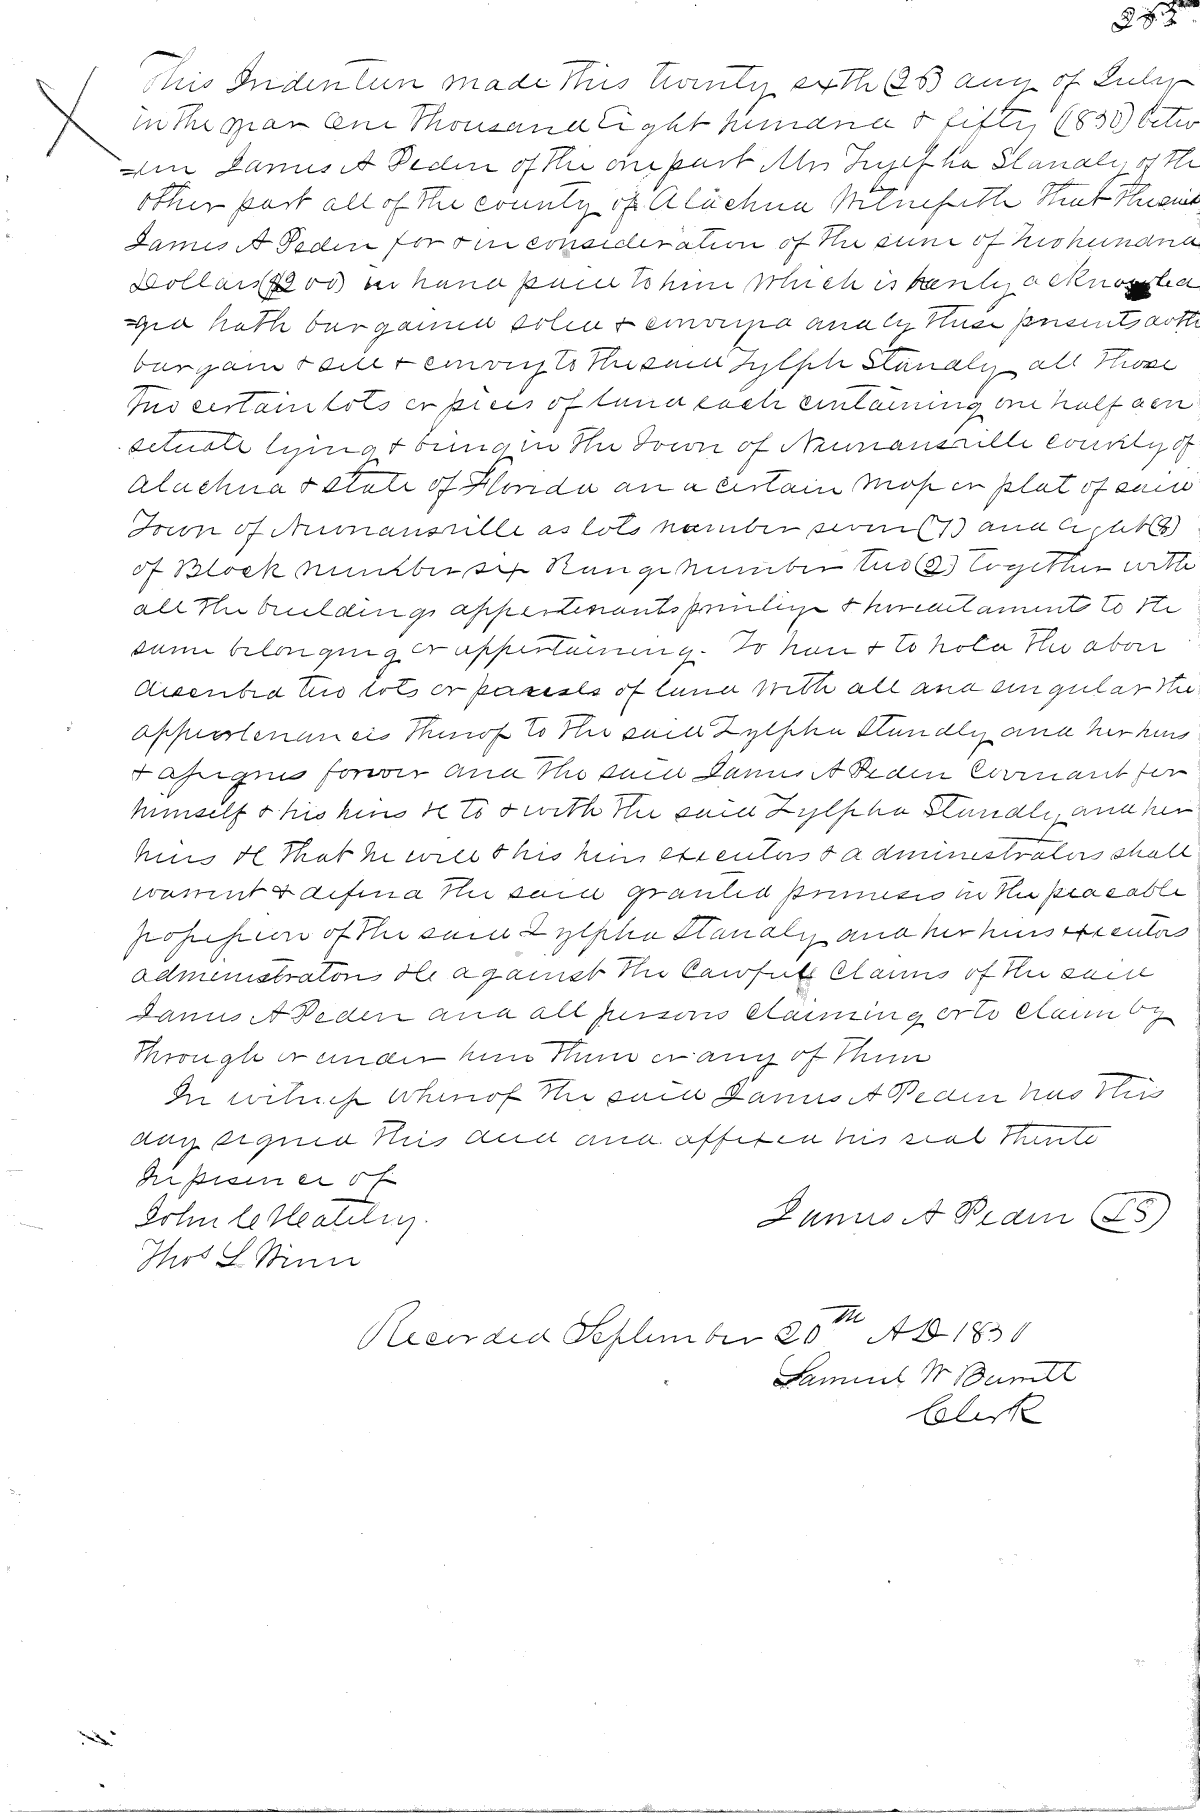 This Indenture made this twenty sixth (26) day of July
in the year One Thousand Eight hundred & fifty (1850) betw
=een James A Peden of the one part Mrs Zylpha Standly of the
other part all of the county of Alachua Witnesseth that the said
James A Peden for & in consideration of the sum of two hundred
Dollars ($200) in hand paid to him which is hereby acknowled
=ged hath bargained soled & conveyed and by these presents doth
bargain & sell & convey to the said Zylpha Standly all those
two certain lots or pices of land each containing one half acre
situate lying & being in the Town of Newnansville county of
Alachua & state of Florida on a certain map or plat of said
Town of Newnansville as lots number seven (7) and eight (8)
of Block number six Range number two (2) together with
all the buildings appertenants privilige & hereditaments to the
same belonging or appertaining. To have & to hold the above
described two lots or parcels of land with all and singular the
appurtenances thereof to the said Zylpha Standly and her heirs
& assignes forever and the said James A Peden Covenant for
himself & his heirs &c to & with the said Zylpha Standly and her
heirs &c that he will & his heirs executors & administrators shall
warrent & defend the said granted premises in the peaceable
possession of the said Zylpha Standly and her heirs executors
administrators &c against the Lawfull Claims of the said
James A Peden and all persons claiming or to claim by
through or under him them or any of them
In witness whereof the said James A Peden has this
day signed this deed and affixed his seal thereto
In presence of
John C Heatley.
James A Peden (LS)
Thos L Winn
Recorded September 20th AD 1850
Samuel W Burnett
Clerk